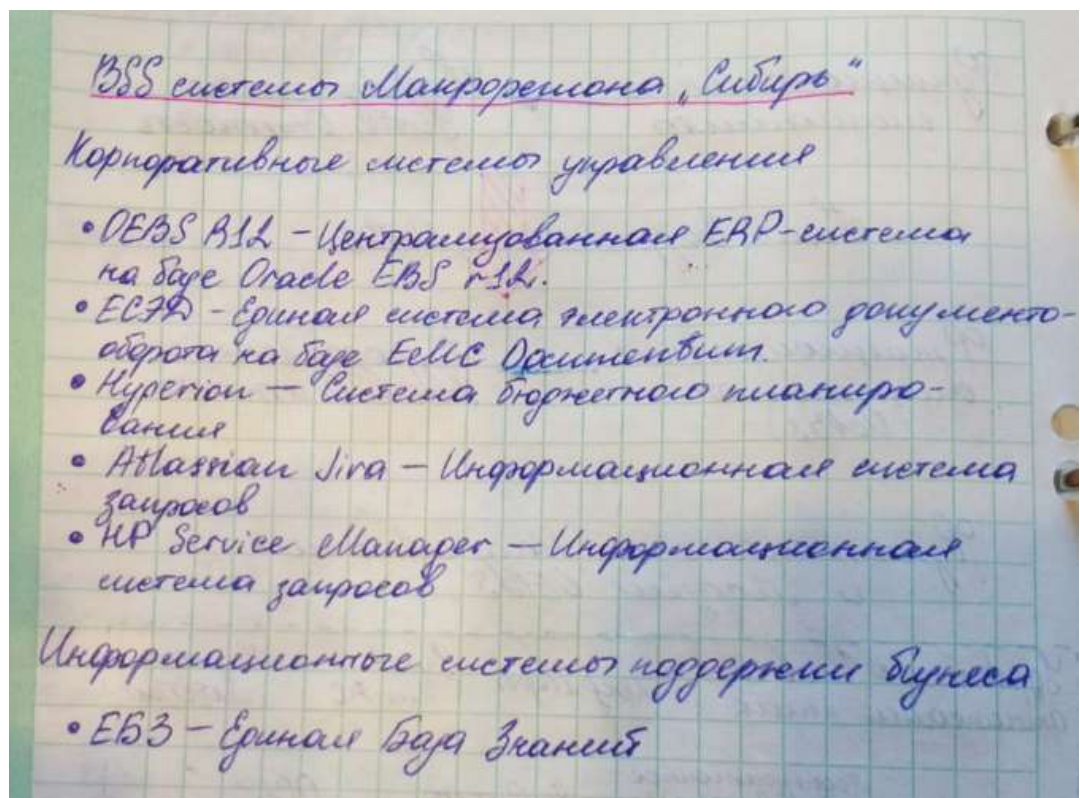 BSS системы Макрорегиона „Сибирь“
Корпоративные системы управления
• OEBS R12 – Централизованная ERP-система
на базе Oracle EBS r12.
• ЕСЭД – Единая система электронного документо-
оборота на базе EMC Documentum.
• Hyperion — Система бюджетного планиро-
вания
• Atlassian Jira — Информационная система
запросов
• HP Service Manager — Информационная
система запросов
Информационные системы поддержки бизнеса
• ЕБЗ — Единая База Знаний